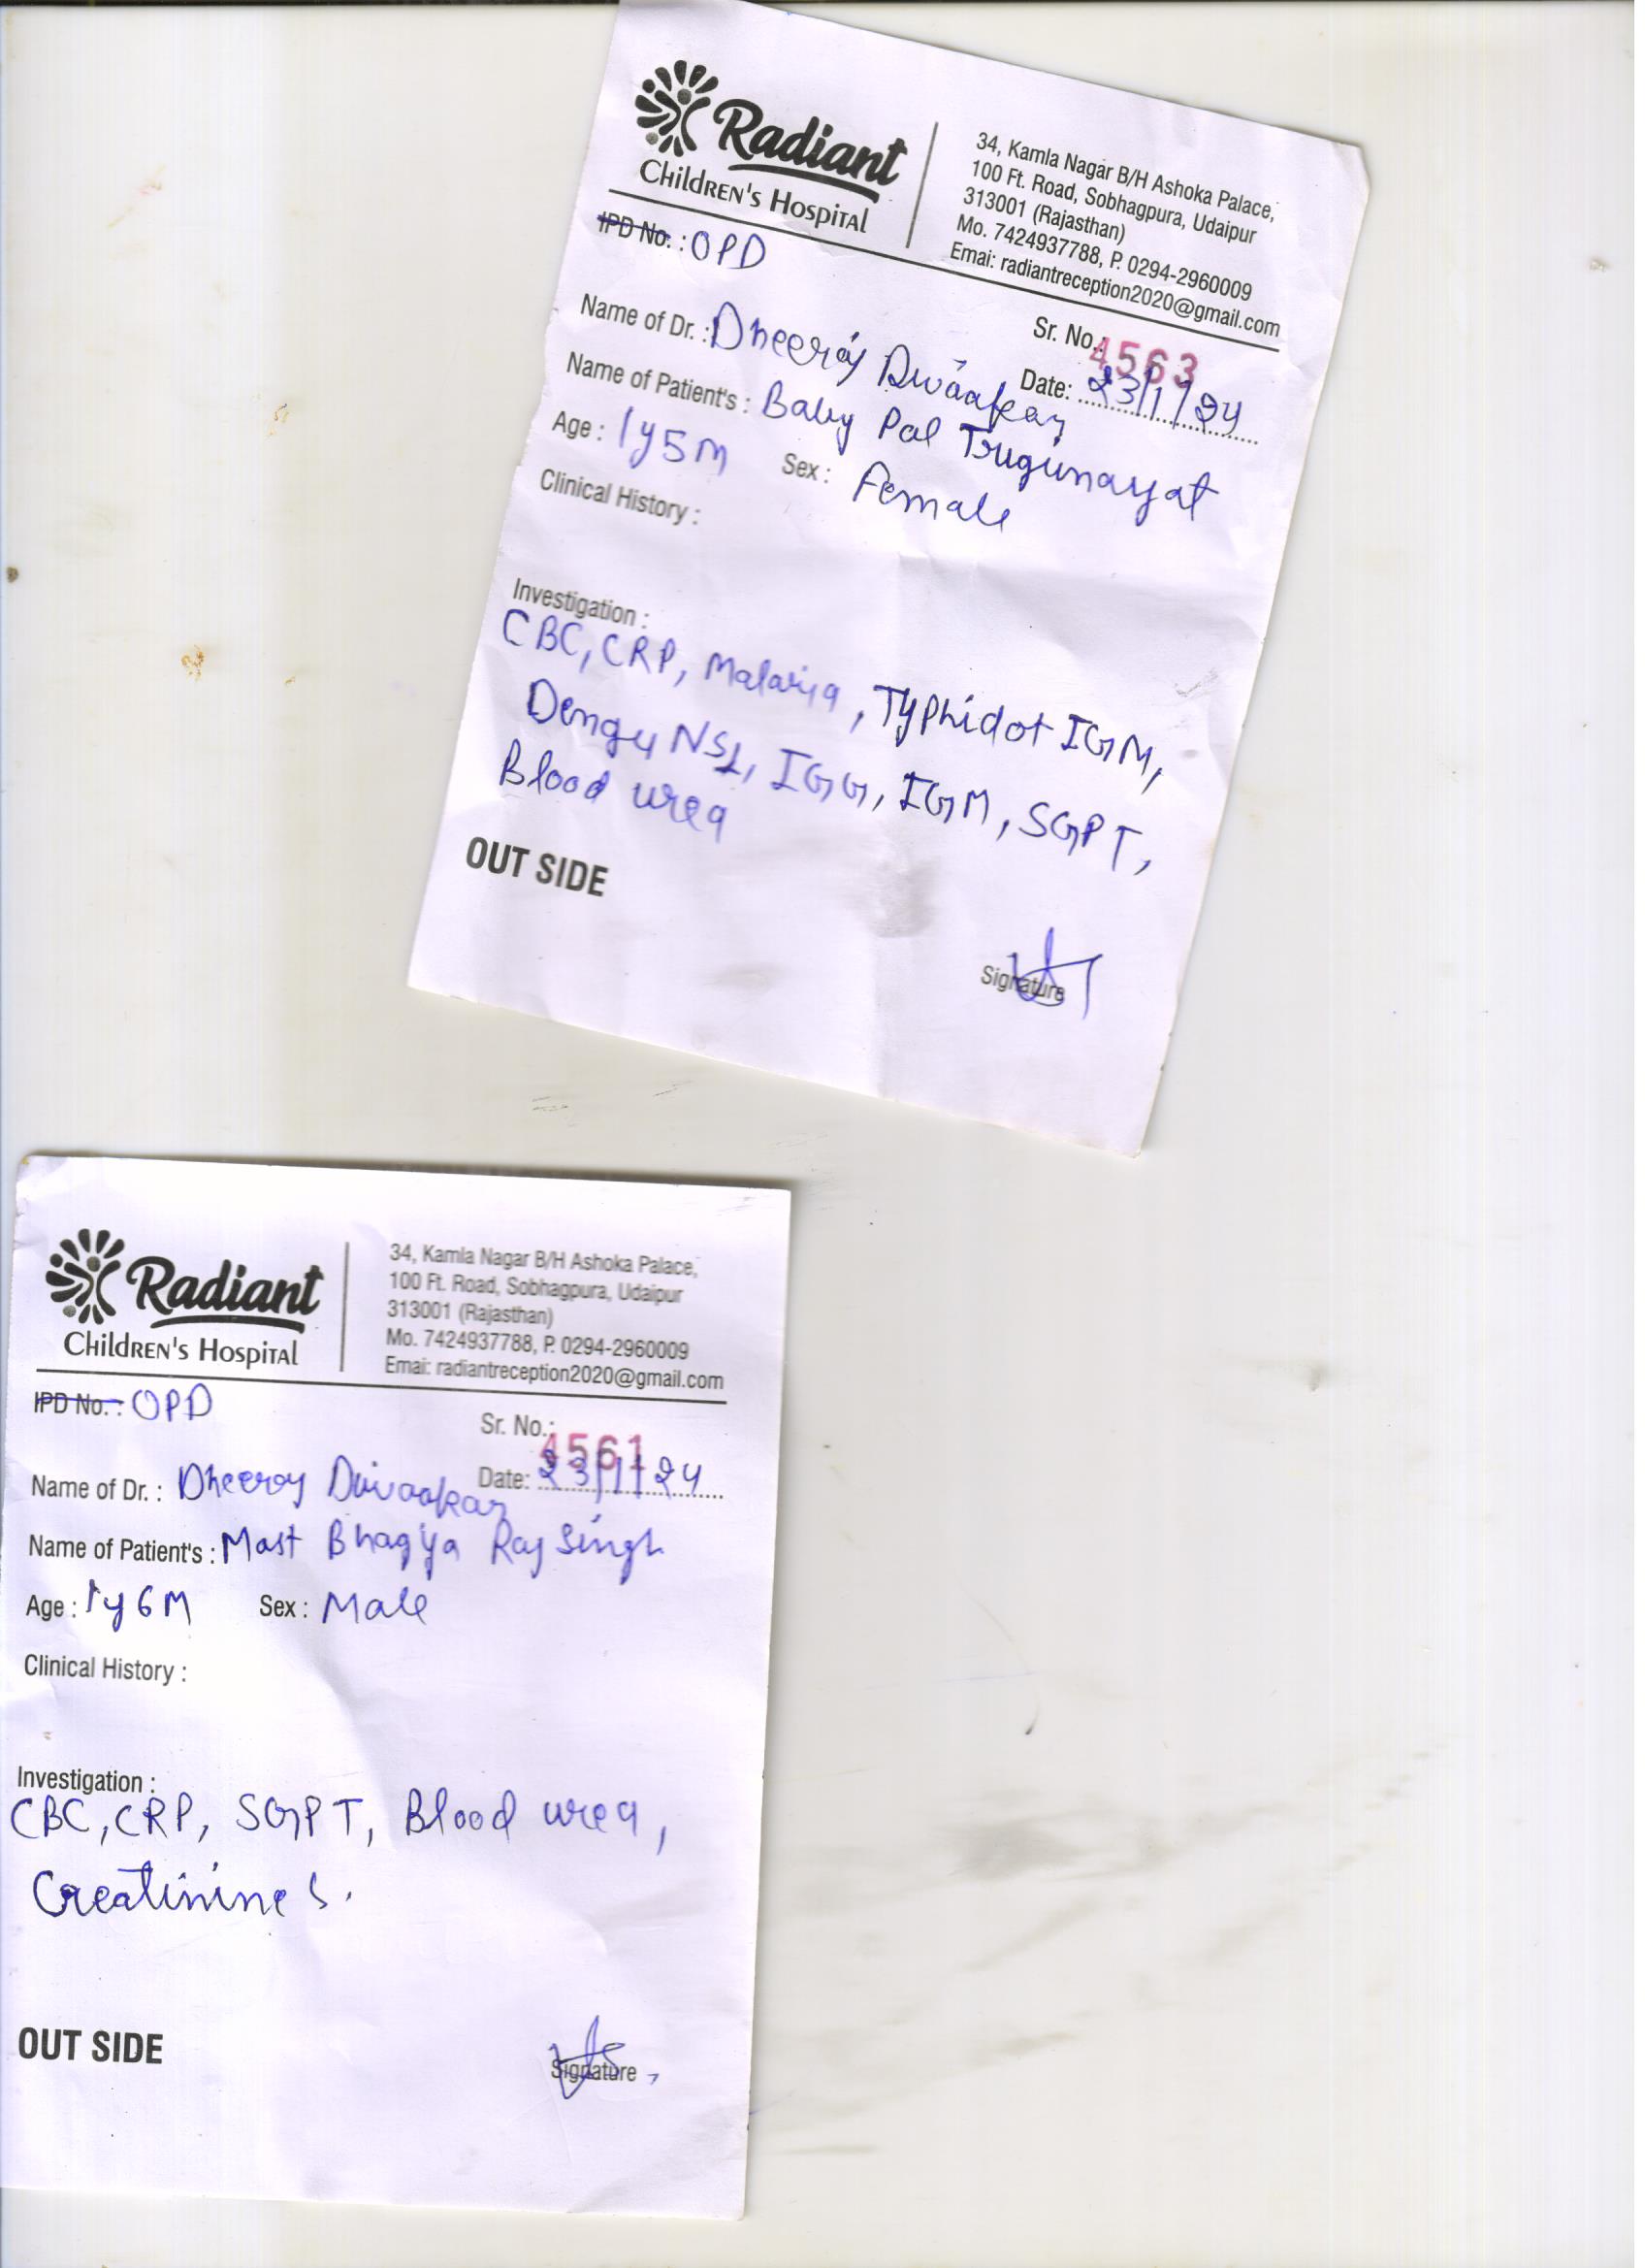 Radiant
Children's Hospital
34, Kamla Nagar B/H Ashoka Palace,
100 Ft. Road, Sobhagpura, Udaipur
313001 (Rajasthan)
Mo. 7424937788, P. 0294-2960009
Emai: radiantreception2020@gmail.com
IPD No. : OPD
Sr. No.: 4563
Name of Dr. : Dheeraj Diwaakar
Date: 23/1/24
Name of Patient's : Baby Pal Trugunayat
Age : 1y5m Sex : Female
Clinical History :
Investigation :
CBC, CRP, Malaria, Typhidot IGM,
Dengu NS1, IGG, IGM, SGPT,
Blood urea
OUT SIDE
Signature
Radiant
Children's Hospital
34, Kamla Nagar B/H Ashoka Palace,
100 Ft. Road, Sobhagpura, Udaipur
313001 (Rajasthan)
Mo. 7424937788, P. 0294-2960009
Emai: radiantreception2020@gmail.com
IPD No. : OPD
Sr. No.: 4561
Name of Dr. : Dheeraj Diwaakar
Date: 23/1/24
Name of Patient's : Mast Bhagya Raj Singh
Age : 1y6M Sex : Male
Clinical History :
Investigation :
CBC, CRP, SGPT, Blood urea,
Creatinine S.
OUT SIDE
Signature